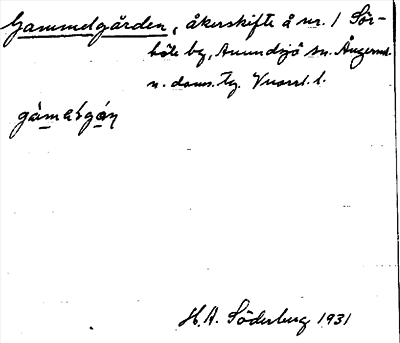 Gammelgården, åkerskifte å nr. 1 Sör-
böle by, Anundsjö sn. Ångerml.
n. doms. tg. Vnorrl. l.
gámaḷgáṇ
H. A. Söderberg 1931